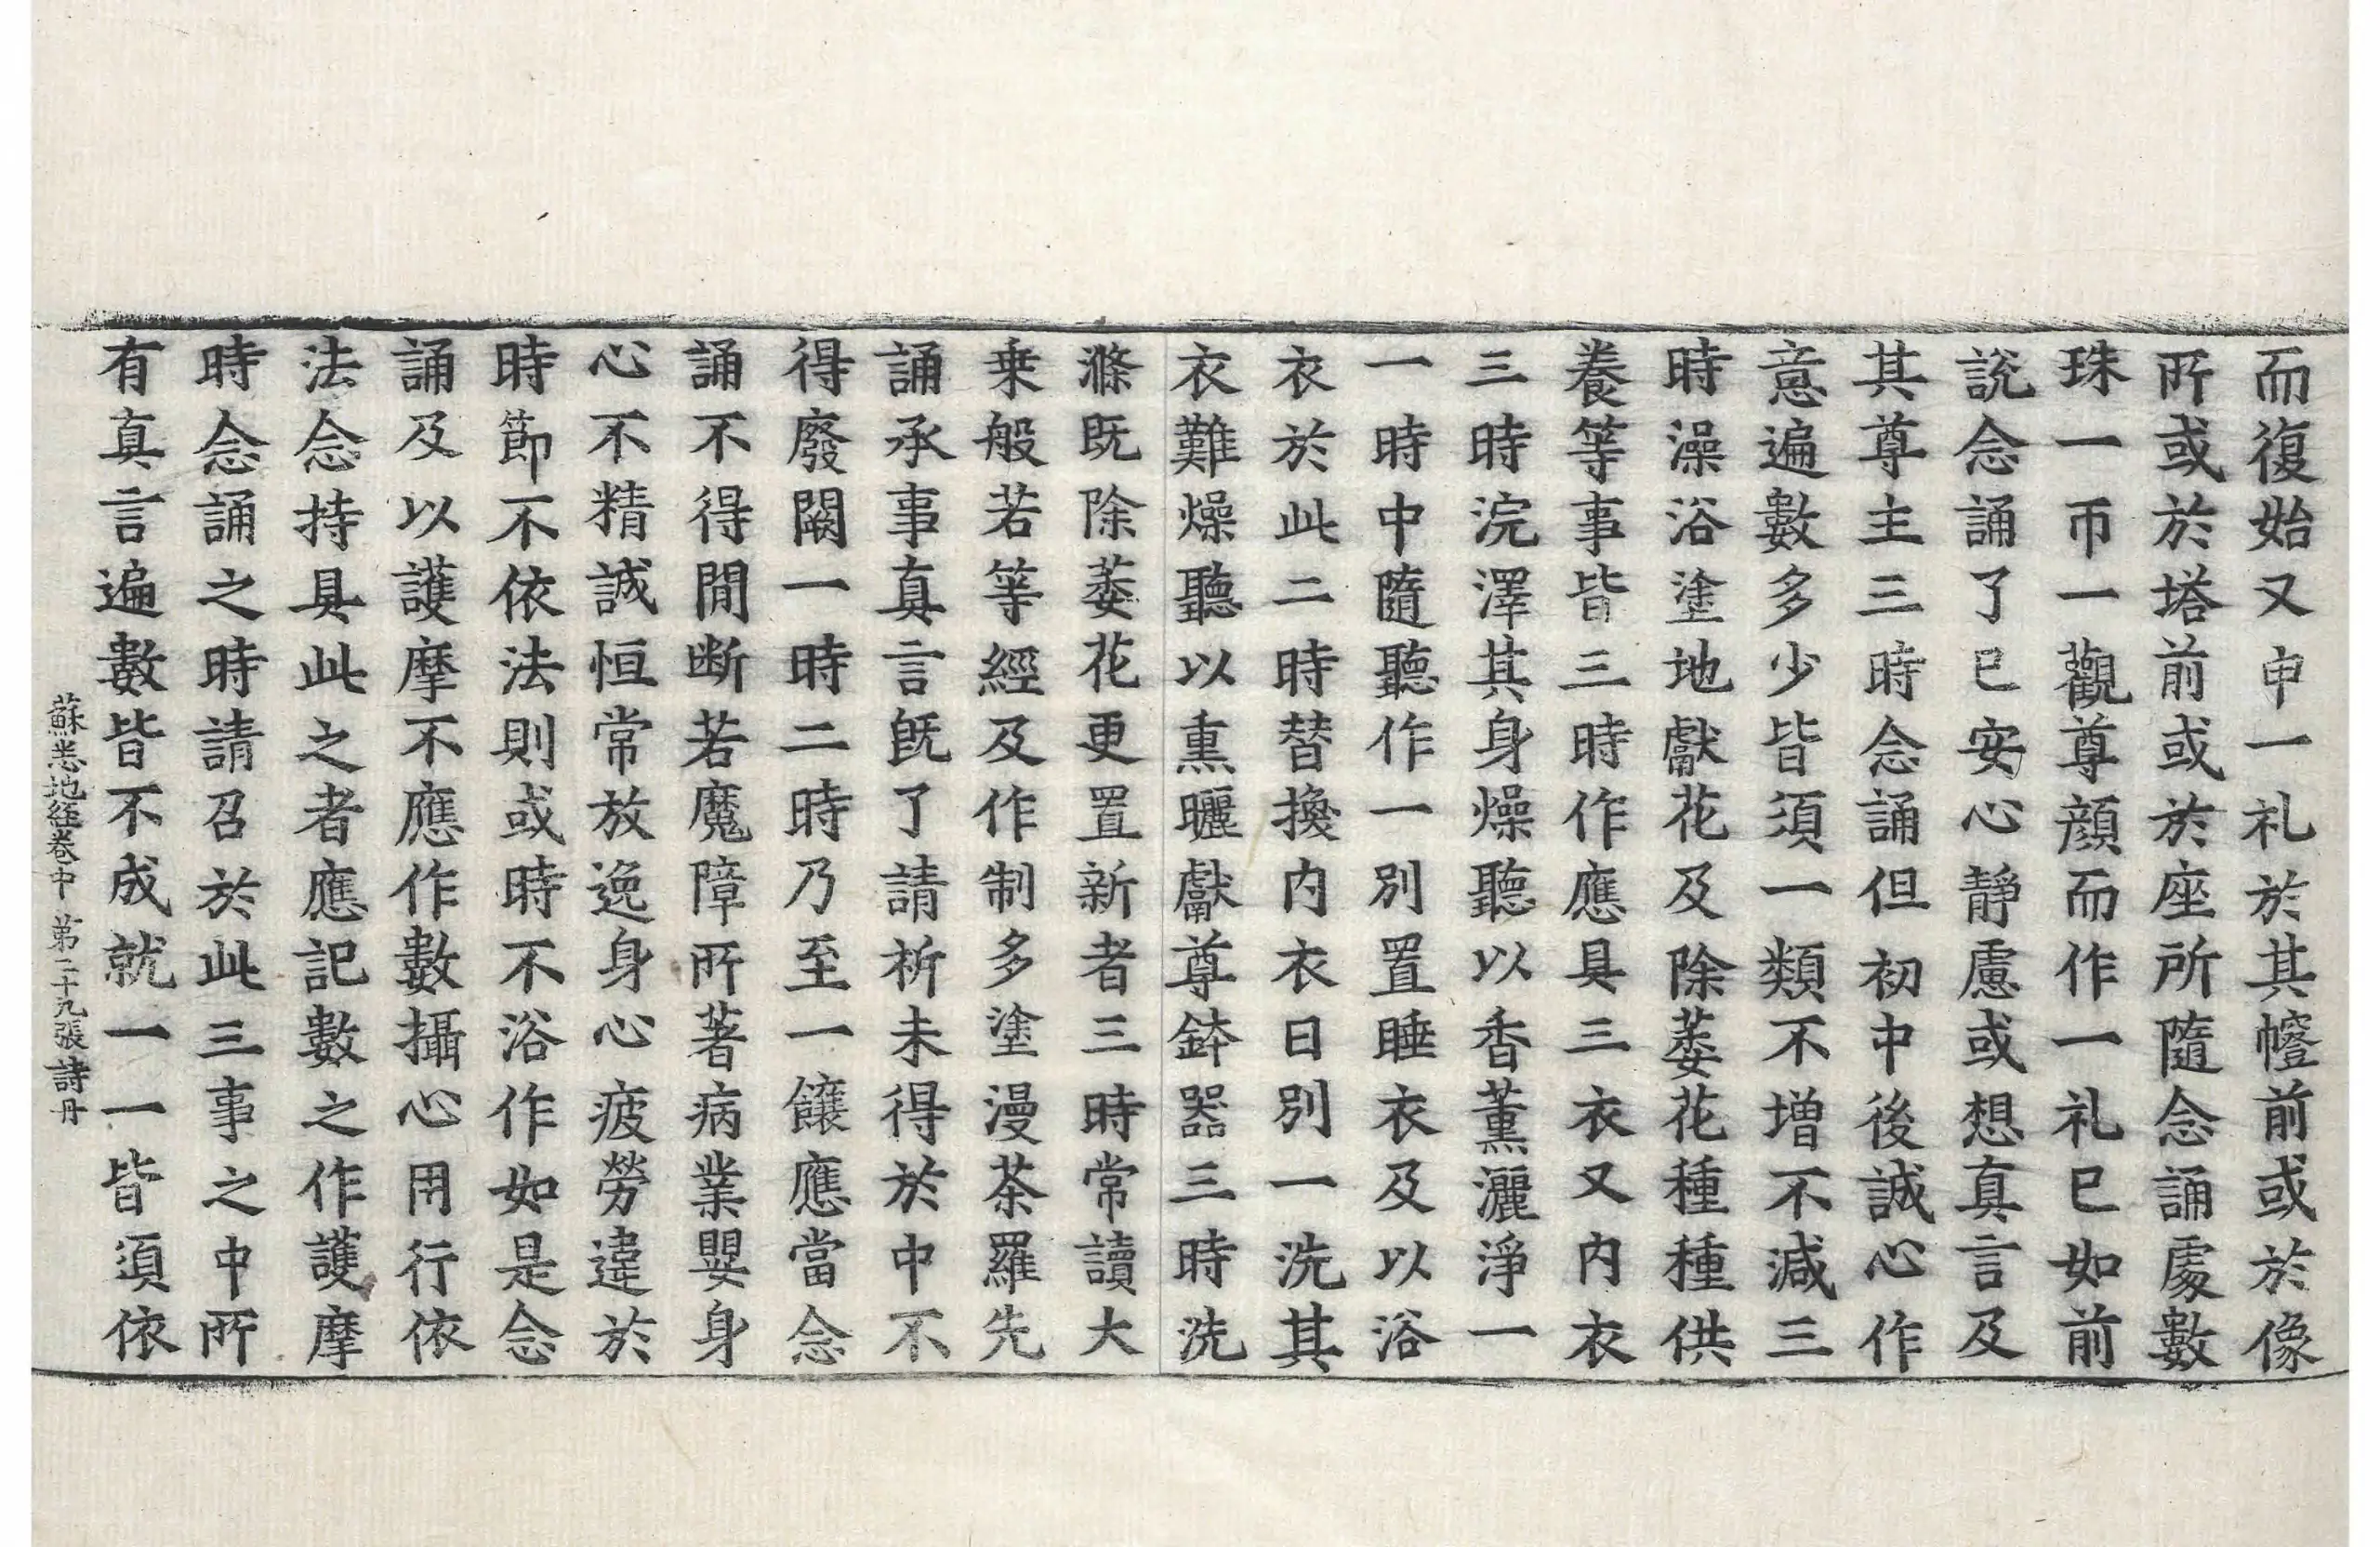 而復始又申一礼於其幢前或於像
所或於塔前或於座所隨念誦處數
珠一帀一觀尊顔而作一礼已如前
說念誦了已安心靜慮或想真言及
其尊主三時念誦但初中後誠心作
意遍數多少皆須一類不增不減三
時澡浴塗地獻花及除萎花種種供
養等事皆三時作應具三衣又内衣
三時浣濯其身燥聽以香薰灑淨一
一時中隨聽作一別置睡衣及以浴
衣於此二時替換内衣日別一洗其
衣難燥聽以熏曬獻尊鉢器三時洗
滌既除萎花更置新者三時常讀大
乗般若等經及作制多塗漫荼羅先
誦承事真言旣了請祈未得於中不
得廢闕一時二時乃至一饟應當念
誦不得閒断若魔障所著病業嬰身
心不精誠恒常放逸身心疲勞違於
時節不依法則或時不浴作如是念
誦及以護摩不應作數攝心用行依
法念持具此之者應記數之作護摩
時念誦之時請召於此三事之中所
有真言遍數皆不成就一一皆須依
蘇悉地経巻中 第二十九張 詩丹